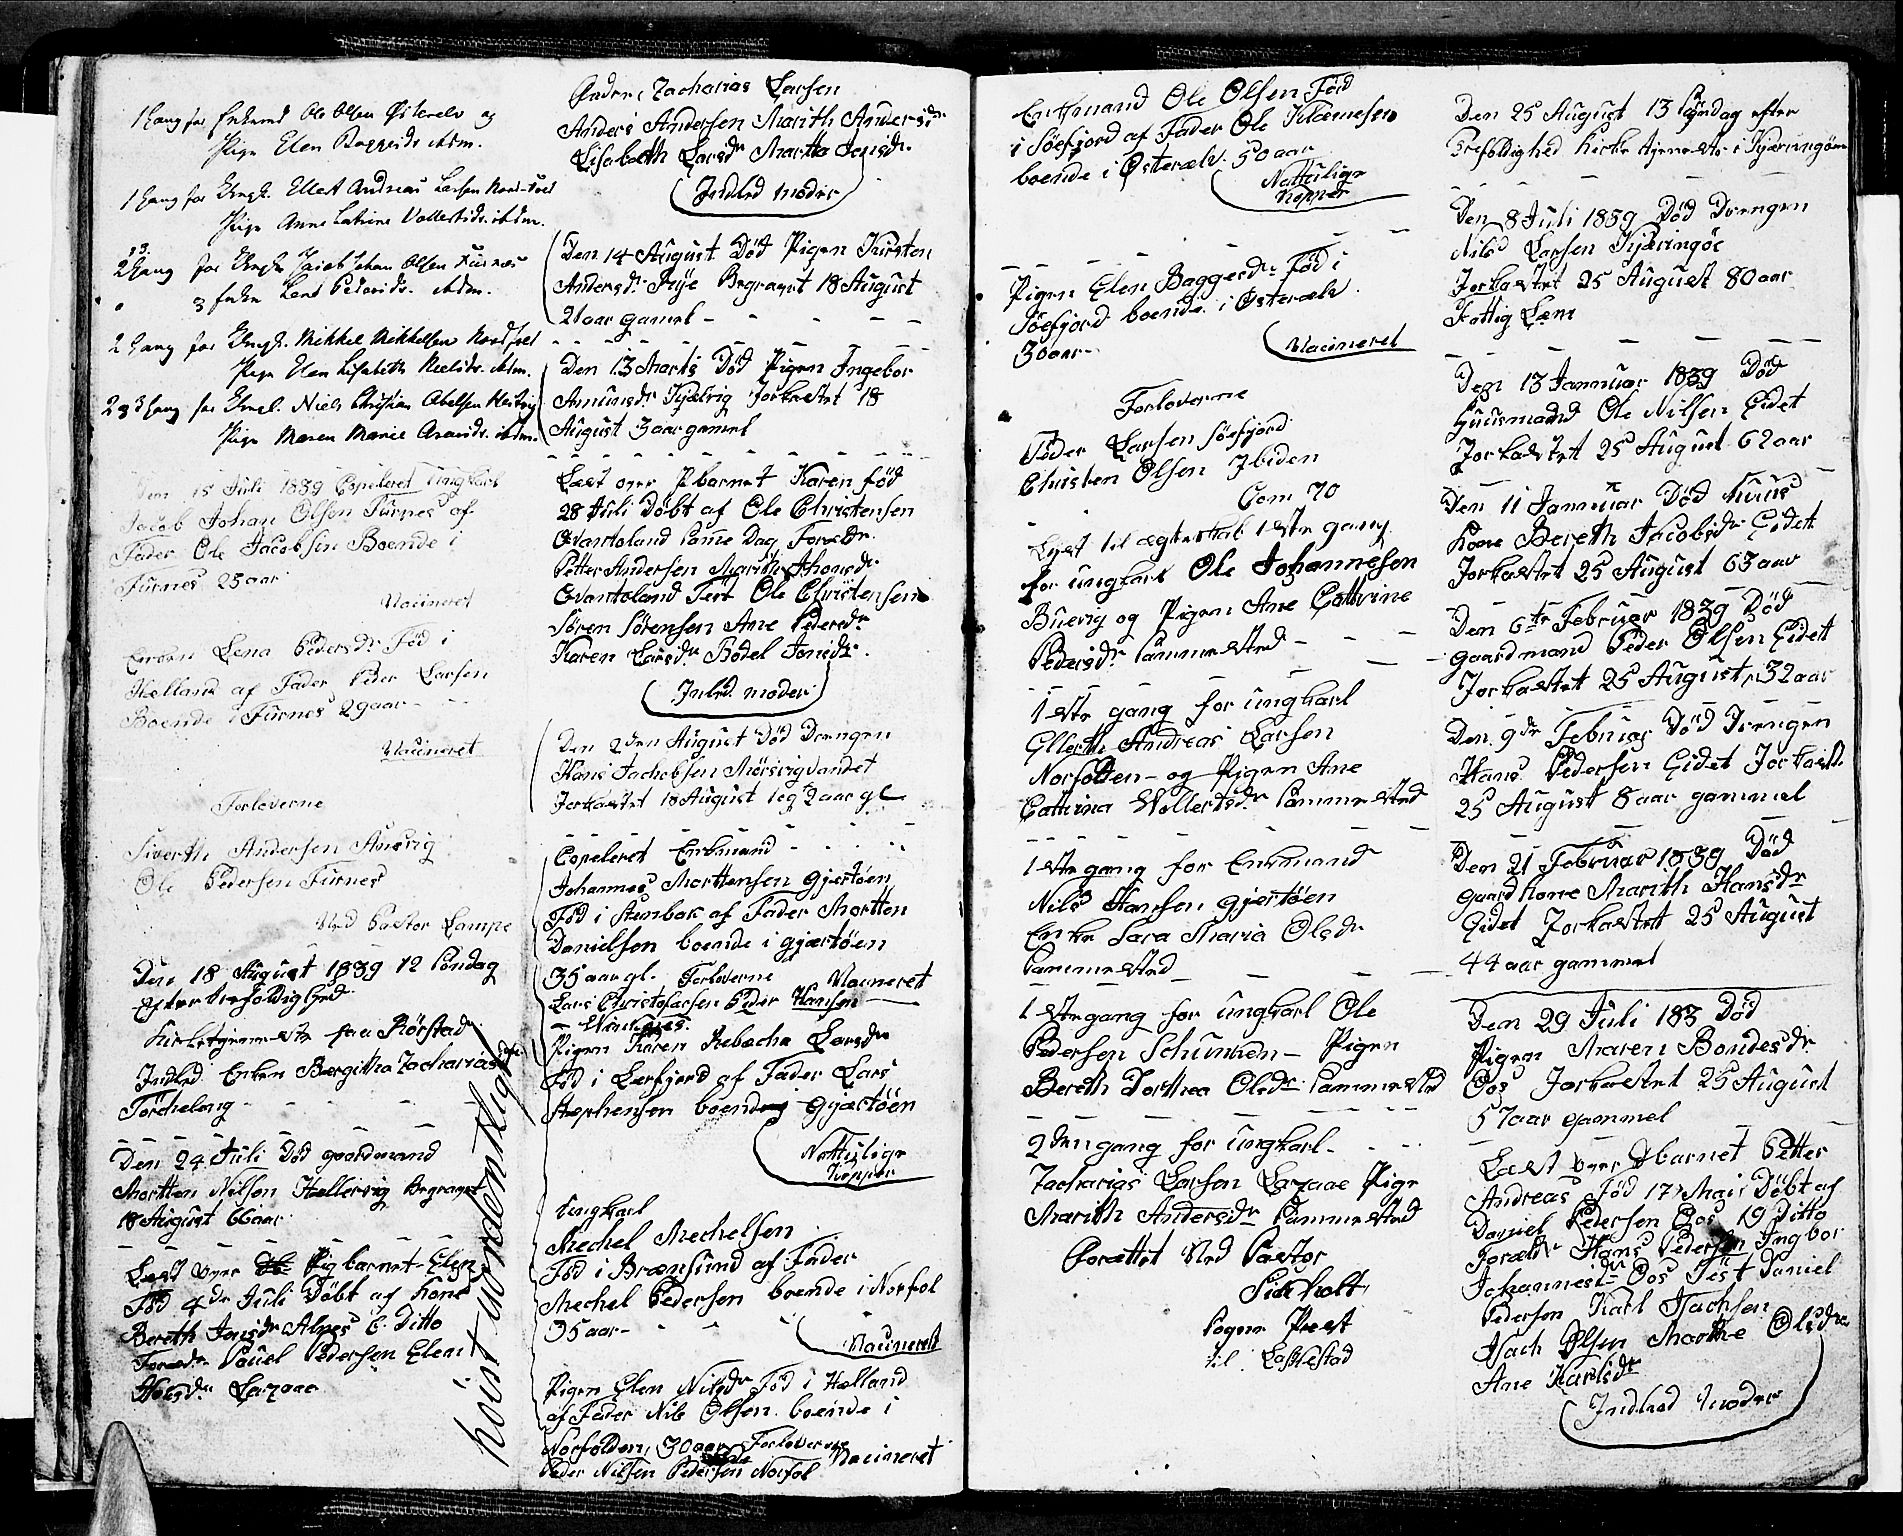 1 Gang for Enkemd Ole Olsen Østerelv og
Pige Elen Baggesdr ibdm.
1 Gang for Ungk. Ellert Andreas Larsen Nord-Fold
Pige Anne Catrine Vollertsdr. ibdm.
2 3 Gang for Ungk Jacob Johan Olsen Furnæs
Enke Lena Pedersdr. ibdm.
2 Gang for Ungk. Mikkel Mikkelsen Nordfold
Pige Elen Lisabeth Nielsdr. ibdm.
2 & 3 Gang for Ungk. Niels Christian Abelsen
Pige Maren Marie ibdm.
Den 15 Juli 1839 Copuleret Ungkarl
Jacob Johan Olsen Furnes af
Fader Ole Jacobsen Boende i
Furnes 25 aar
Vacineret
Lena Pedersdr Fød i
Hælland af Fader Peder Larsen
Boende i Furnes 29 aar - -
Vacineret
Forloverne
Siverth Andersen
Ole Pedersen Furnes
Ved Pastor Lampe
Den 18 August 1839 12 Søndag
efter trefoldighed
Kirketjenneste paa Rørstad
Indled Enken Bergitha Zachariasdr
Tørcheleng - - -
Den 24 Juli Død gaardmand
Mortten Nilsen Hellervig Begravet
18 August 66 aar
Læst over Pigbarnet Elen
Fød 4de Juli Døbt af Kone
Bereth Jensdr Alnes 6 Ditto
Forældr Pouel Pedersen Elen
Larzaae
høist uordentligt
Zacharias Larsen
Anders Andersen Marith Andersdr
Lisabeth Larsdr Martha Jensdr.
Indled moder
Den 14 August Død Pigen Kirsten
Andersdr Begravet 18 August
21 aar gamel - - -
Den 13 Marts Død Pigen Ingebor
Amunsdr Kjelvig Jorkastet 18
August 3 aar gamel
Læst over Pbarnet Karen fød
28 Juli Døbt af Ole Christensen
Qvantoland same Dag Forældr
Petter Andersen Marith
Qvantoland Test Ole Christensen
Søren Sørensen Ane Pedersdr
Karen Larsdr Bodel Jensdr.
Inled moder
Den 2den August Død Drengen
Hans Jachobsen Mørsvigvandet
Jorkastet 18 August 1 og 1/2 aar gl
Copeleret Enkmand
Johannes Morttensen Gjertøen
Fød i Stenbak af Fader Mortten
Danielsen boende i gjærtøen
35 aar gl. Forloverne Vacineret
Lars Christofarsen Peder Hansen
Pigen Karen Rebecha Larsdr
Fød i Lerfjord af Fader Lars
Stephensen boende Gjærtøen
Nattulige
kopper
Ungkarl
Mechel Mechelsen
Fød i Brænsund af Fader
Mechel Pedersen boende i Norfol
35 aar -
Vacineret
Pigen Elen Nilsdr Fød i Hælland
af Fader Nils Olsen boende i
Norfolden, 30 aar Forloverne
Vacineret
Peder Nilsen Pedersen Norfol
Enkmand Ole Olsen Fød
i Søefjord af Fader Ole Klæmesen
boende i Østerælv. 50 aar
Nattulige
kopper
Pigen Elen Baggesdr Fød i
Søefjord boende i Østerælv.
30 aar -
Vacineret
Forloverne
Peder Larsen Søefjord
Christen Olsen Ibiden
Com 70
Lyst til ægteskab 1ste gang
for ungkarl Ole Johannesen
Buevig og Pigen Ane Cathrine
Pedersdr Sammested - - -
1ste gang for ungkarl
Ellerth Andreas Larsen
Norfolden - og Pigen Ane
Cattrina Wollertsdr Sammested
1ste gang for Enkmand
Nils Hansen gjertøen
Enke Sara Maria Olsdr
Sammested
1ste gang for ungkarl Ole
Pedersen - Pigen
Bereth Dorthea Olsdr Sammested
2den gang for ungkarl
Zacharias Larsen Larzaae Pige
Marith Andersdr Sammested
Forættet Ved Pastor
Sogne Præst
til
Den 25 August 13 Søndag efter
Trefoldighed Kirke tjeneste i Kjæringøen
Den 8 Juli 1839 Død Drengen
Nils Larsen Kjæringøe
Jorkastet 25 August 80 aar
Fattig Lem
Den 13 Januar 1839 Død
Huusmand Ole Nilsen Eidet
Jorkastet 25 August 62 aar
Den 11 Januar Død Huus
Kone Bereth Jacobsdr Eidet
Jorkastet 25 August 63 aar
Den 6te Februer 1839 Død
gaardmand Peder Olsen Eidet
Jorkastet 25 August, 32 aar
Den 9de Februar Død Drengen
Hans Pedersen Eidet Jorkast
25 August 8 aar gammel
Den 21 Februar 1839 Død
gaardkone Marith Hansdr
Eidet Jorkastet 25 August
44 aar gammel
Den 29 Juli 183 Død
Pigen Maren Bondesdr
Oos Jorkastet 25 August
57 aar gammel
Læst over Dbarnet Petter
Andreas Fød 17 Mai Døbt af
Daniel Pedersen Oos 19 Ditto
Forældr Hans Pedersen Ingbor
Johannesdr Oos Test Daniel
Pedersen Karl Isachsen
Isach Olsen Marthe Olsdr
Ane Karlsdr
Indled moder